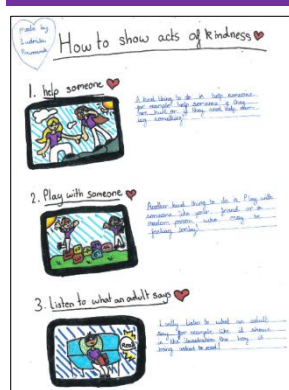 made by
Ludivika
How to show acts of kindness
1. help someone
A kind thing to do is help someone
for example help someone if they
are hurt or if they need help
ing something
2. Play with someone
Another kind thing to do is Play with
someone like your friend or a
random person who may be
feeling lonely!
3. Listen to what an adult says
Lastly listen to what an adult
say for example like it shows
in the illustration the boy is
being asked to read!
Read